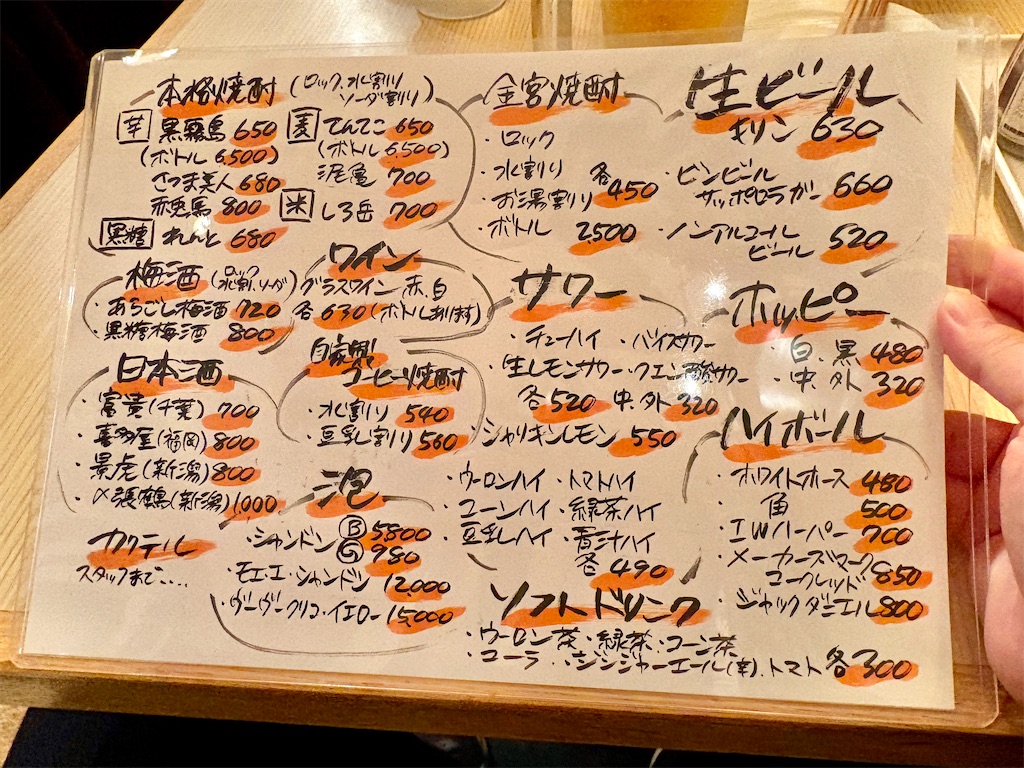 本格焼酎 (ロック、水割り
ソーダ割り)
芋 黒霧島 650
(ボトル 6,500)
さつま美人 680
赤兎馬 800
黒糖 れんと 680
麦 てんてこ 650
(ボトル 6,500)
泥亀 700
米 しろ岳 700
梅酒 (ロック
水割、ソーダ)
・あらごし梅酒 720
・黒糖梅酒 800
ワイン
グラスワイン 赤、白
各 630 (ボトルあります)
日本酒
・富貴(千葉) 700
・喜多屋(福岡) 800
・景虎(新潟) 800
・〆張鶴(新潟) 1,000
自家製
コーヒー焼酎
・水割り 540
・豆乳割り 560
カクテル
スタッフまで....
泡
・シャンドン Ⓑ 5,800
Ⓖ 980
・モエ・エ・シャンドン 12,000
・ヴーヴ・クリコ・イエロー 15,000
金宮焼酎
・ロック
・水割り
・お湯割り 各 450
・ボトル 2,500
生ビール
キリン 630
・ビンビール
サッポロラガー 660
・ノンアルコール
ビール 520
サワー
・チューハイ ・バイスサワー
・生レモンサワー・クエン酸サワー
各 520 中、外 320
・シャリキンレモン 550
・ウーロンハイ ・トマトハイ
・コーンハイ ・緑茶ハイ
・豆乳ハイ ・青汁ハイ
各 490
ホッピー
・白、黒 480
・中、外 320
ハイボール
・ホワイトホース 480
・角 500
・I.W.ハーパー 700
・メーカーズマーク
コークレッド 850
・ジャックダニエル 800
ソフトドリンク
・ウーロン茶・緑茶・コーン茶
・コーラ ・ジンジャーエール(辛)、トマト 各 300